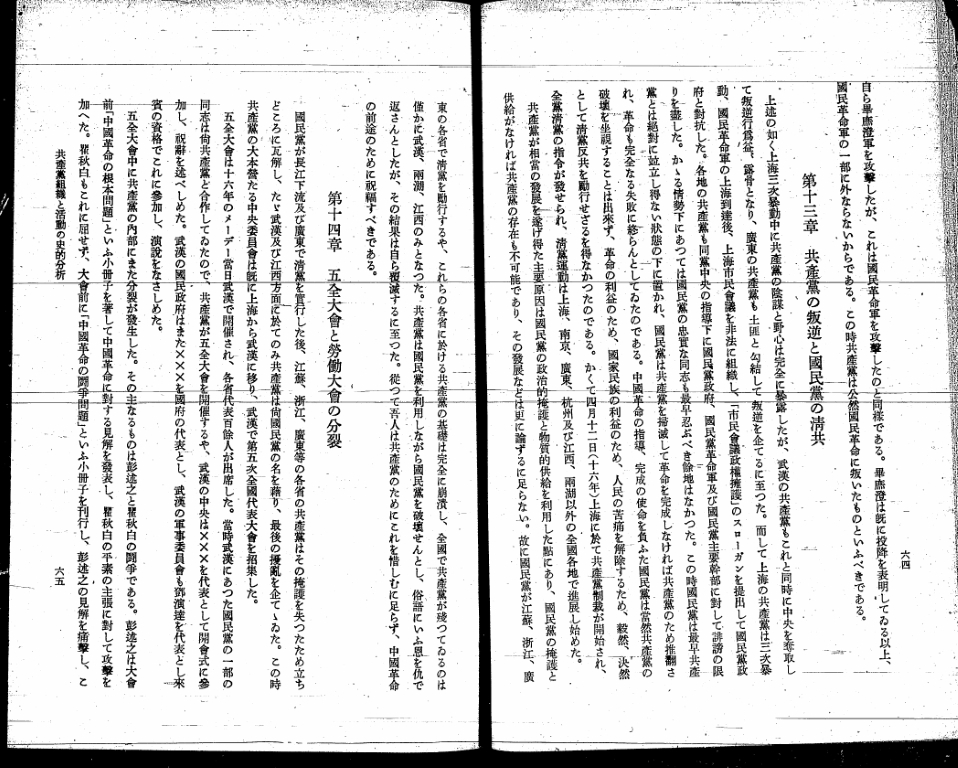 六四
自ら畢庶澄軍を攻擊したが、これは國民革命軍を攻擊したのと同樣である。畢庶澄は旣に投降を表明してゐる以上、
國民革命軍の一部に外ならないからである。この時共產黨は公然國民革命に叛いたものといふべきである。
第十三章 共產黨の叛逆と國民黨の淸共
上述の如く上海三次暴動中に共產黨の陰謀と野心は完全に暴露したが、武漢の共產黨もこれと同時に中央を奪取し
て叛逆行爲益〻露骨となり、廣東の共產黨も土匪と勾結して叛逆を企てるに至つた。而して上海の共產黨は三次暴
動、國民革命軍の上海到達後、上海市民會議を非法に組織し、「市民會議政權擁護のスローガンを提出して國民黨政
府と對抗した。各地の共產黨も同黨中央の指導下に國民黨政府、國民黨革命軍及び國民黨主要幹部に對して誹謗の限
りを盡した。かゝる情勢下にあつては國民黨の忠實な同志も最早忍ぶべき餘地はなかつた。この時國民黨は最早共產
黨とは絕對に竝立し得ない狀態の下に置かれ、國民黨は共產黨を掃滅して革命を完成しなければ共產黨のため推翻さ
れ、革命も完全なる失敗に終らんとしてゐたのである。中國革命の指導、完成の使命を負ふた國民黨は當然共產黨の
破壞を坐視することは出來ず、革命の利益のため、國家民族の利益のため、人民の苦痛を解除するため、毅然、決然
として淸黨反共を勵行せざるを得なかつたのである。かくて四月十二日(十六年)上海に於て共產黨制裁が開始され、
全黨淸黨の指令が發せられ、淸黨運動は上海、南京、廣東、杭州及び江西、兩湖以外の全國各地で進展し始めた。
共產黨が相當の發展を遂げ得た主要原因は國民黨の政治的掩護と物質的供給を利用した點にあり、國民黨の掩護と
供給がなければ共產黨の存在も不可能であり、その發展などは更に論ずるに足らない。故に國民黨が江蘇、浙江、廣
東の各省で淸黨を勵行するや、これらの各省に於ける共產黨の基礎は完全に崩潰し、全國で共產黨が殘つてゐるのは
僅かに武漢、兩湖、江西のみとなつた。共產黨は國民黨を利用しながら國民黨を破壞せんとし、俗語にいふ恩を仇で
返さんとしたが、その結果は自ら覆滅するに至つた。從つて吾人は共產黨のためにこれを惜しむに足らず、中國革命
の前途のために祝福すべきである。
第十四章 五全大會と勞働大會の分裂
國民黨が長江下流及び廣東で淸黨を實行した後、江蘇、浙江、廣東等の各省の共產黨はその掩護を失つたため立ち
どころに瓦解し、たゞ武漢及び江西方面に於てのみ共產黨は尙國民黨の名を藉り、最後の擾亂を企てゝゐた。この時
共產黨の大本營たる中央委員會は旣に上海から武漢に移り、武漢で第五次全國代表大會を招集した。
五全大會は十六年のメーデー當日武漢で開催され、各省代表百餘人が出席した。當時武漢にあつた國民黨の一部の
同志は尙共產黨と合作してゐたので、共產黨が五全大會を開催するや、武漢の中央は×××を代表として開會式に參
加し、祝辭を述べしめた。武漢の國民政府はまた×××を國府の代表とし、武漢の軍事委員會も鄧演達を代表とし來
賓の資格でこれに參加し、演說をなさしめた。
五全大會中に共產黨の內部にまた分裂が發生した。その主なるものは彭述之と瞿秋白の鬪爭である。彭述之は大會
前「中國革命の根本問題」といふ小冊子を著して中國革命に對する見解を發表し、瞿秋白の平素の主張に對して攻擊を
加へた。瞿秋白もこれに屈せず、大會前に「中國革命の鬪爭問題」といふ小冊子を刊行し、彭述之の見解を痛擊し、こ
共產黨組織と活動の史的分析
六五